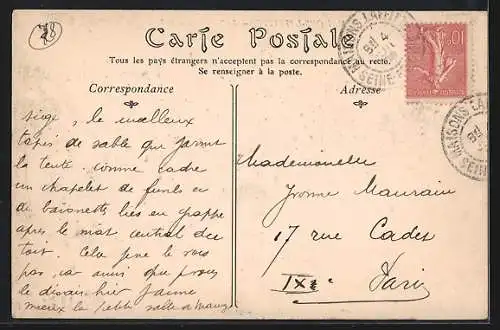 78
Carte Postale
Tous les pays étrangers n'acceptent pas la correspondance au recto.
Se renseigner à la poste.
Correspondance
Adresse
siège, le moelleux
tapis de sable qui garnit
la tente comme cadre
un chapelet de fusils et
de baïonnettes liés en grappe
après le mat central du
toit. Cela je ne le vois
pas, car ainsi que je vous
le disais hier j'aime
mieux la petite salle à manger
Mademoiselle
Yvonne Maurain
17 rue Cadet
IXe
Paris
MAISONS LAFFITTE
SEINE-ET-
10
MAISONS LA
SEINE